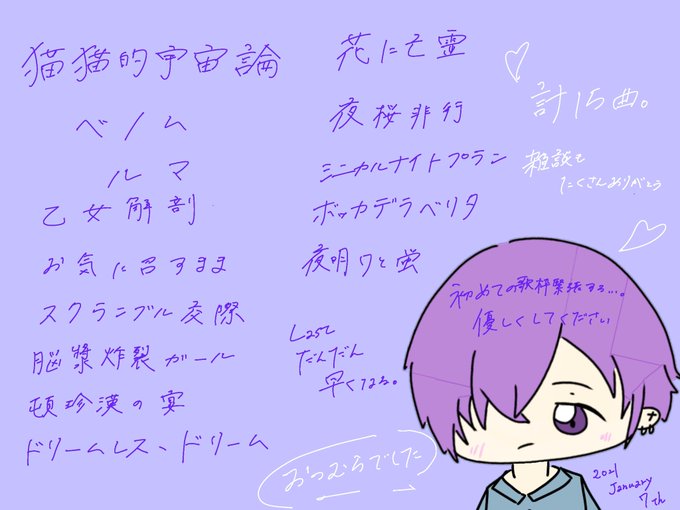 猫猫的宇宙論
ベノム
ルマ
乙女解剖
お気に召すまま
スクランブル交際
脳漿炸裂ガール
頓珍漢の宴
ドリームレス、ドリーム
花に亡霊
夜桜非行
シニカルナイトプラン
ボッカデラベリタ
夜明けと蛍
しだいに
だんだん
早くなる。
計15曲。
雑談も
たくさんありがとう
初めての歌枠緊張する…。
優しくしてください
おつむらでした
2021
January
7th